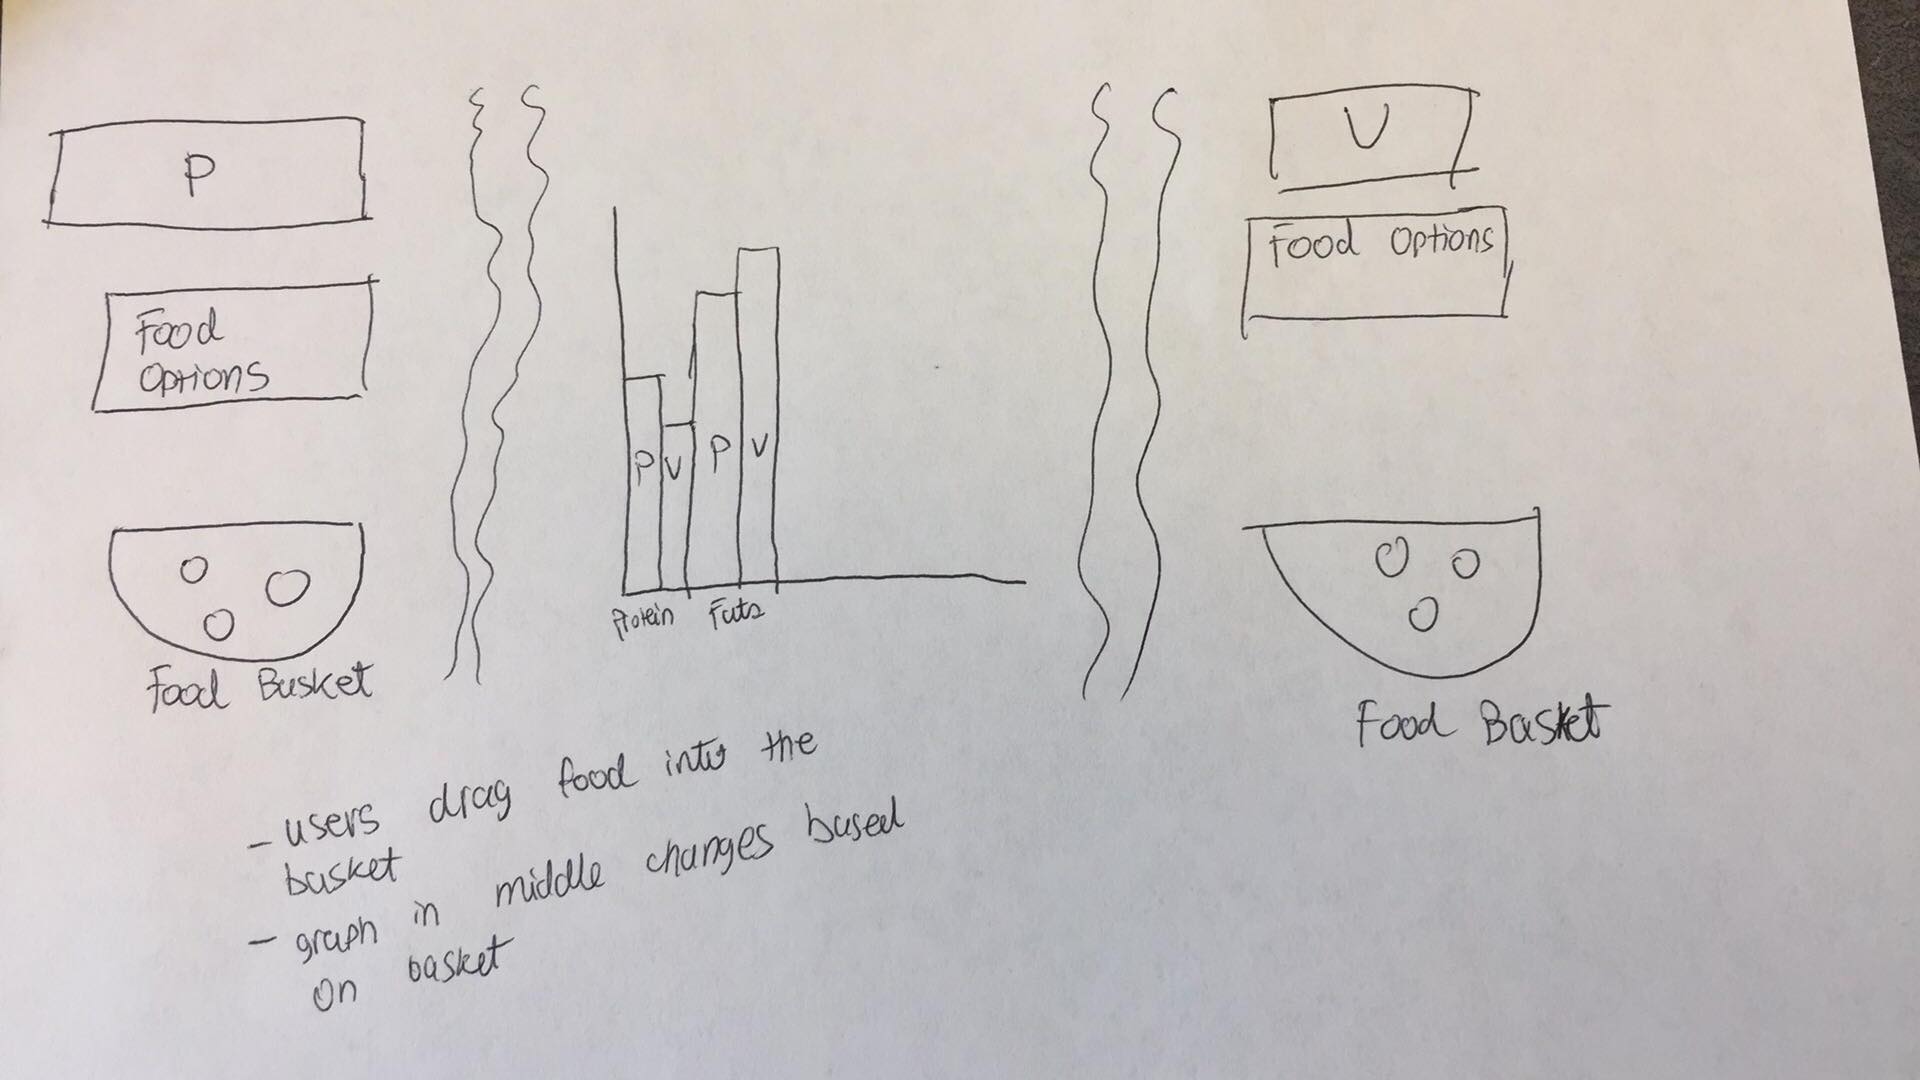 P
Food
Options
Food Basket
P
V
P
V
Protein
Fats
V
Food Options
Food Basket
- users drag food into the
basket
- graph in middle changes based
on basket